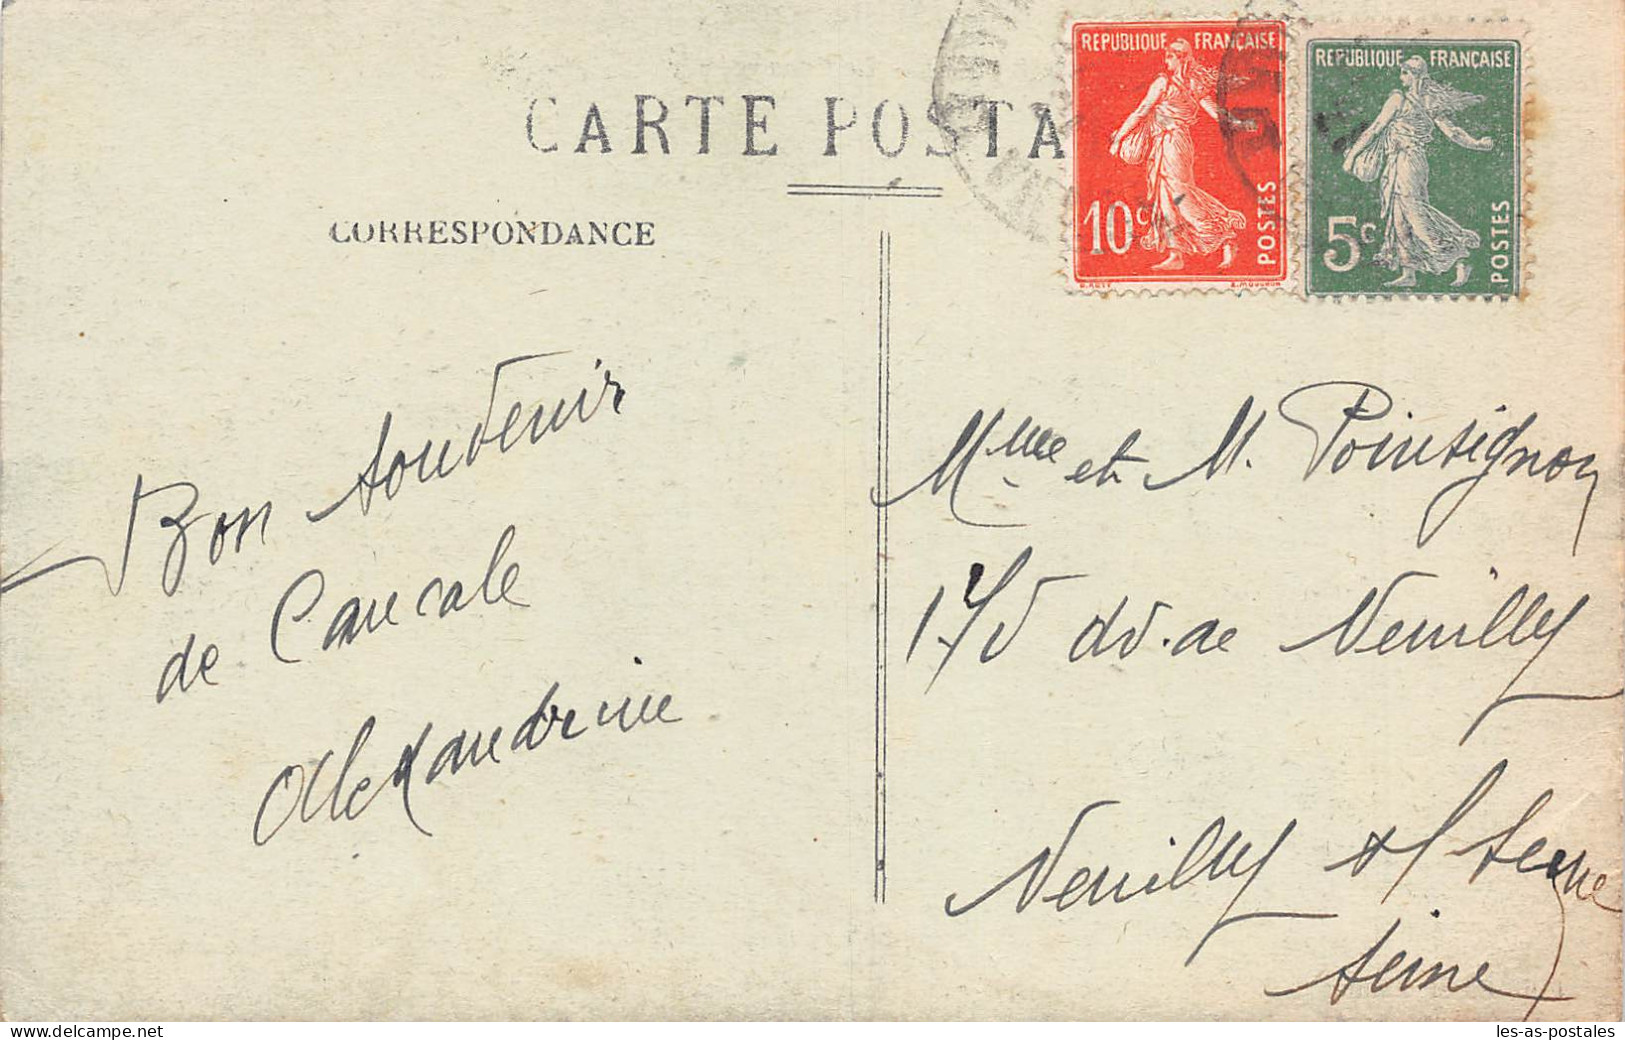 CARTE POSTA
CORRESPONDANCE
REPUBLIQUE FRANÇAISE
10c
POSTES
REPUBLIQUE FRANÇAISE
5c
POSTES
Bon souvenir
de Cancale
Alexandrine
Mme et M. Poinsignon
de Neuilly
Neuilly s/ Seine
Seine
delcampe.net
les-as-postales